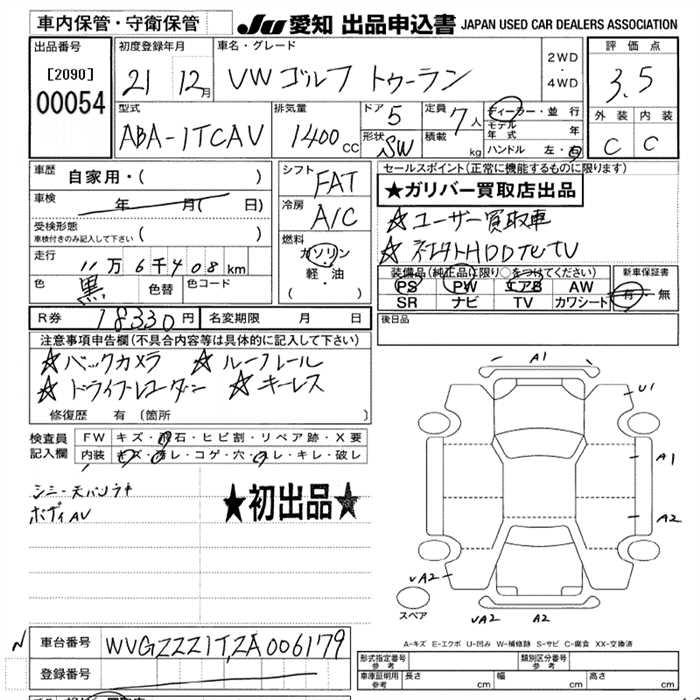 車内保管・守衛保管
JU 愛知 出品申込書 JAPAN USED CAR DEALERS ASSOCIATION
出品番号
[2090]
00054
初度登録年月
21 12月
車名・グレード
VW ゴルフ トゥーラン
2WD
・
4WD
評価点
3.5
外装 内装
C C
型式
ABA-1TCAV
排気量
1400 cc
ドア 5
形状 SW
定員 7人
積載 kg
ディーラー・並行
モデル年式 年
ハンドル 左・右
車歴
自家用・( )
車検
年 月( 日)
受検形態
車検付きのみ記入して下さい ( )
走行
11万6千408km
色 黒 色替 色コード
シフト
FAT
冷房
A/C
燃料
ガソリン
・
軽・油
( )
セールスポイント(正常に機能するものに限ります)
★ガリバー買取店出品
☆ユーザー買取車
装備品(純正品に限り○をつけてください)
PS PW エアB AW
SR ナビ TV カワシート
新車保証書
有・無
R券 18330円 名変期限 月 日
後日品
注意事項申告欄(不具合内容等は具体的に記入して下さい)
☆バックカメラ ☆ルーフレール
☆ドライブレコーダー ☆キーレス
修復歴 有 〔箇所
検査員
記入欄
FW キズ・飛石・ヒビ割・リペア跡・X要
内装 キズ・汚レ・コゲ・穴・ヌレ・キレ・破レ
シミー天バリキ
ボディAU
★初出品★
A1
U1
A1
A2
UA2
UA2
A2
スペア
A-キズ E-エクボ U-凹み W-補修跡 S-サビ C-腐食 XX-交換済
車台番号
WVGZZZ1TZA006179
登録番号
形式指定番号
参考
類別区分番号
参考
車庫証明用
参考
長さ cm 幅 cm 高さ cm